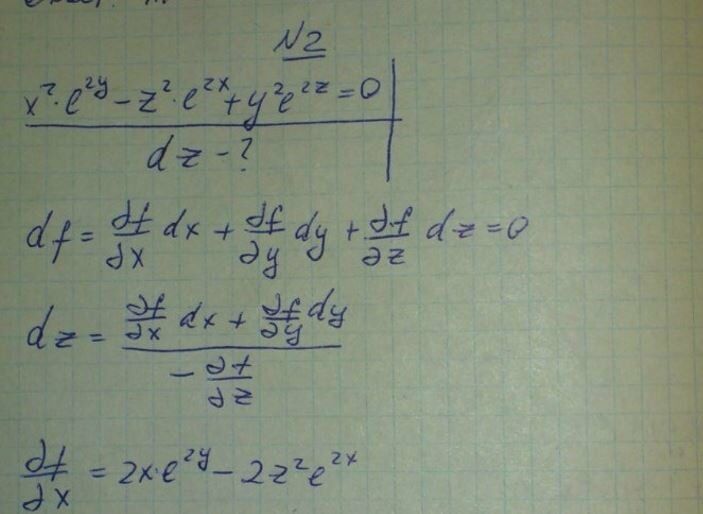 N2
x²·e^{2y} - z²·e^{2x} + y²e^{2z} = 0
dz - ?
df = ∂f/∂x dx + ∂f/∂y dy + ∂f/∂z dz = 0
dz = (∂f/∂x dx + ∂f/∂y dy) / (-∂f/∂z)
∂f/∂x = 2x·e^{2y} - 2z²e^{2x}